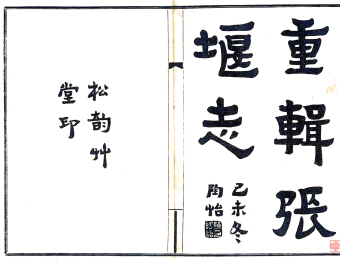 重輯張
堰志
己未冬
陶怡
松韵艸
堂印